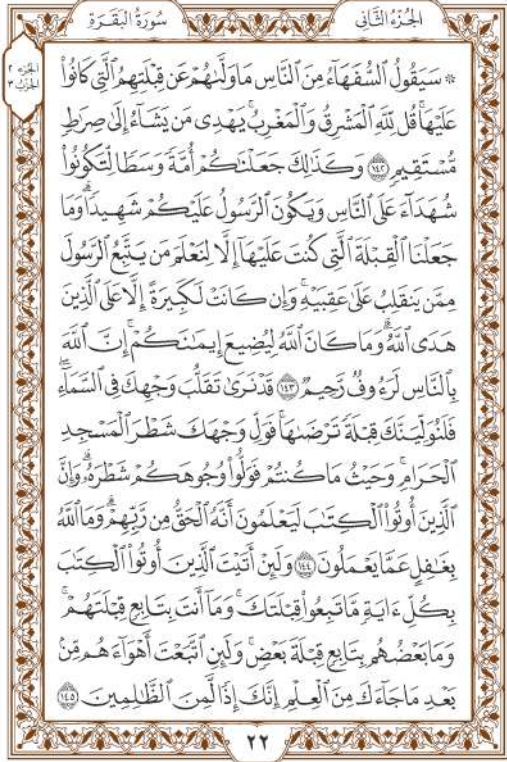 سُورَةُ الْبَقَرَةِ
الجُزْءُ الثَّانِي
الجزء ٢
الحزب ٣
۞ سَيَقُولُ ٱلسُّفَهَآءُ مِنَ ٱلنَّاسِ مَا وَلَّىٰهُمْ عَن قِبْلَتِهِمُ ٱلَّتِي كَانُواْ
عَلَيْهَاۚ قُل لِّلَّهِ ٱلْمَشْرِقُ وَٱلْمَغْرِبُۚ يَهْدِي مَن يَشَآءُ إِلَىٰ صِرَٰطٍ
مُّسْتَقِيمٍ ١٤٢ وَكَذَٰلِكَ جَعَلْنَٰكُمْ أُمَّةً وَسَطًا لِّتَكُونُواْ
شُهَدَآءَ عَلَى ٱلنَّاسِ وَيَكُونَ ٱلرَّسُولُ عَلَيْكُمْ شَهِيدًاۗ وَمَا
جَعَلْنَا ٱلْقِبْلَةَ ٱلَّتِي كُنتَ عَلَيْهَآ إِلَّا لِنَعْلَمَ مَن يَتَّبِعُ ٱلرَّسُولَ
مِمَّن يَنقَلِبُ عَلَىٰ عَقِبَيْهِۚ وَإِن كَانَتْ لَكَبِيرَةً إِلَّا عَلَى ٱلَّذِينَ
هَدَى ٱللَّهُۗ وَمَا كَانَ ٱللَّهُ لِيُضِيعَ إِيمَٰنَكُمْۚ إِنَّ ٱللَّهَ
بِٱلنَّاسِ لَرَءُوفٌ رَّحِيمٌ ١٤٣ قَدْ نَرَىٰ تَقَلُّبَ وَجْهِكَ فِي ٱلسَّمَآءِۖ
فَلَنُوَلِّيَنَّكَ قِبْلَةً تَرْضَىٰهَاۚ فَوَلِّ وَجْهَكَ شَطْرَ ٱلْمَسْجِدِ
ٱلْحَرَامِۚ وَحَيْثُ مَا كُنتُمْ فَوَلُّواْ وُجُوهَكُمْ شَطْرَهُۥۗ وَإِنَّ
ٱلَّذِينَ أُوتُواْ ٱلْكِتَٰبَ لَيَعْلَمُونَ أَنَّهُ ٱلْحَقُّ مِن رَّبِّهِمْۗ وَمَا ٱللَّهُ
بِغَٰفِلٍ عَمَّا يَعْمَلُونَ ١٤٤ وَلَئِنْ أَتَيْتَ ٱلَّذِينَ أُوتُواْ ٱلْكِتَٰبَ
بِكُلِّ ءَايَةٍ مَّا تَبِعُواْ قِبْلَتَكَۚ وَمَآ أَنتَ بِتَابِعٍ قِبْلَتَهُمْۚ
وَمَا بَعْضُهُم بِتَابِعٍ قِبْلَةَ بَعْضٍۚ وَلَئِنِ ٱتَّبَعْتَ أَهْوَآءَهُم مِّنۢ
بَعْدِ مَا جَآءَكَ مِنَ ٱلْعِلْمِ إِنَّكَ إِذًا لَّمِنَ ٱلظَّٰلِمِينَ ١٤٥
٢٢